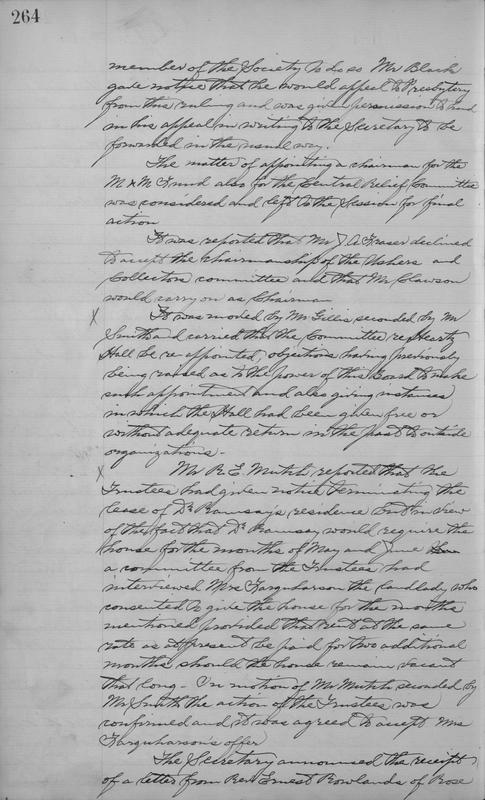 264
member of the Society to do so Mr Black
gave notice that he would appeal to Presbytery
from this ruling and was given permission to hand
in his appeal in writing to the Secretary to be
forwarded in the usual way.
The matter of appointing a chairman for the
M & M Fund also for the Central Relief Committee
was considered and left to the Session for final
action
It was reported that Mr J A Fraser declined
to accept the chairmanship of the Ushers and
Collectors committee and that Mr Clawson
would carry on as Chairman
X It was moved by Mr Gillis seconded by Mr
Smith and carried that the Committee re
Hall be re-appointed, objections having previously
being raised as to the power of this Board to make
such appointment and also giving instances
in which the Hall had been given free or
without adequate return in the past to outside
organizations.-
X Mr R. E. Mutch reported that the
Trustees had given notice terminating the
lease of Dr Ramsay's residence but in view
of the fact that Dr Ramsay would require the
house for the months of May and June
a committee from the Trustees had
interviewed Mrs Farquharson the landlady who
consented to give the house for the months
mentioned provided that rent at the same
rate as at present be paid for two additional
months should the house remain vacant
that long - On motion of Mr Mutch seconded by
Mr Smith the action of the Trustees was
confirmed and it was agreed to accept Mrs
Farquharson's offer
The Secretary announced the receipt
of a letter from Rev Ernest Rowlands of Rose